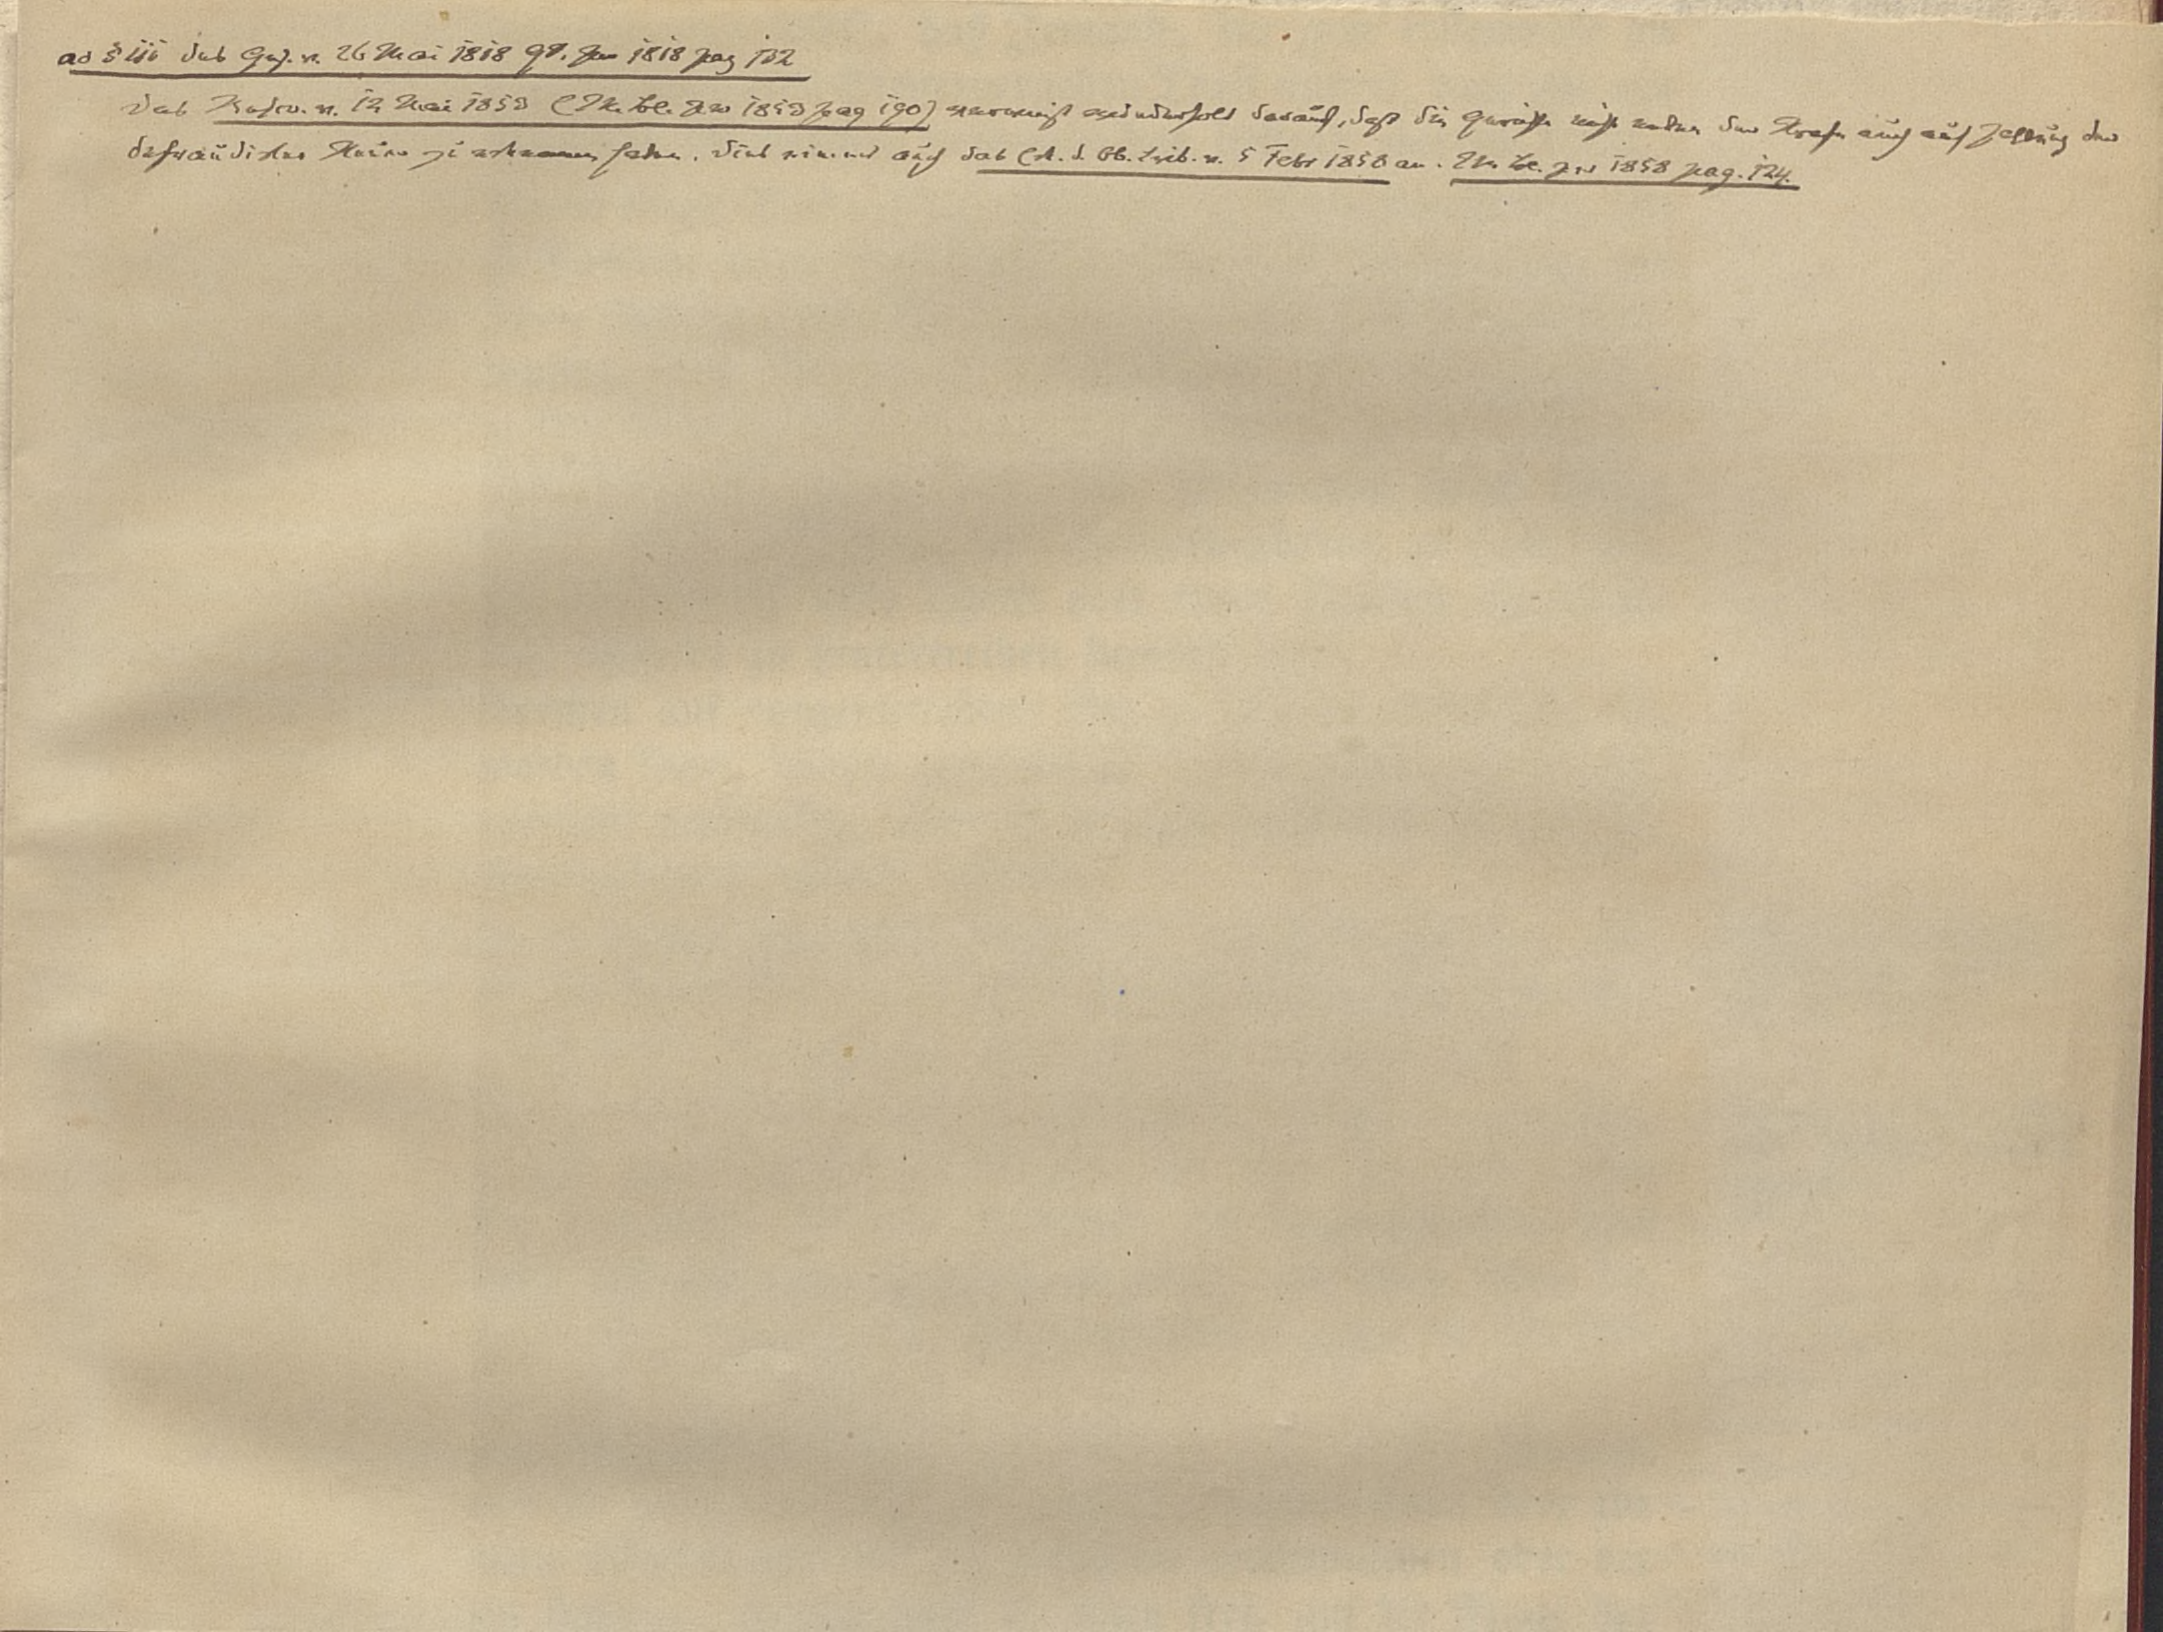 ad § 111 des Ges. v. 26 Mai 1818 GS. pro 1818 pag 102
Das Rescr. v. 12 Mai 1853 (M. Bl. pro 1853 pag 190) verweist wiederholt darauf, daß die Gerichte nicht neben der Strafe auch auf Zahlung der
defraudirten Steuer zu erkennen haben. Dies nimmt auch das Erk. d. Ob. Trib. v. 5 Febr 1858 an. M. Bl. pro 1858 pag. 124.